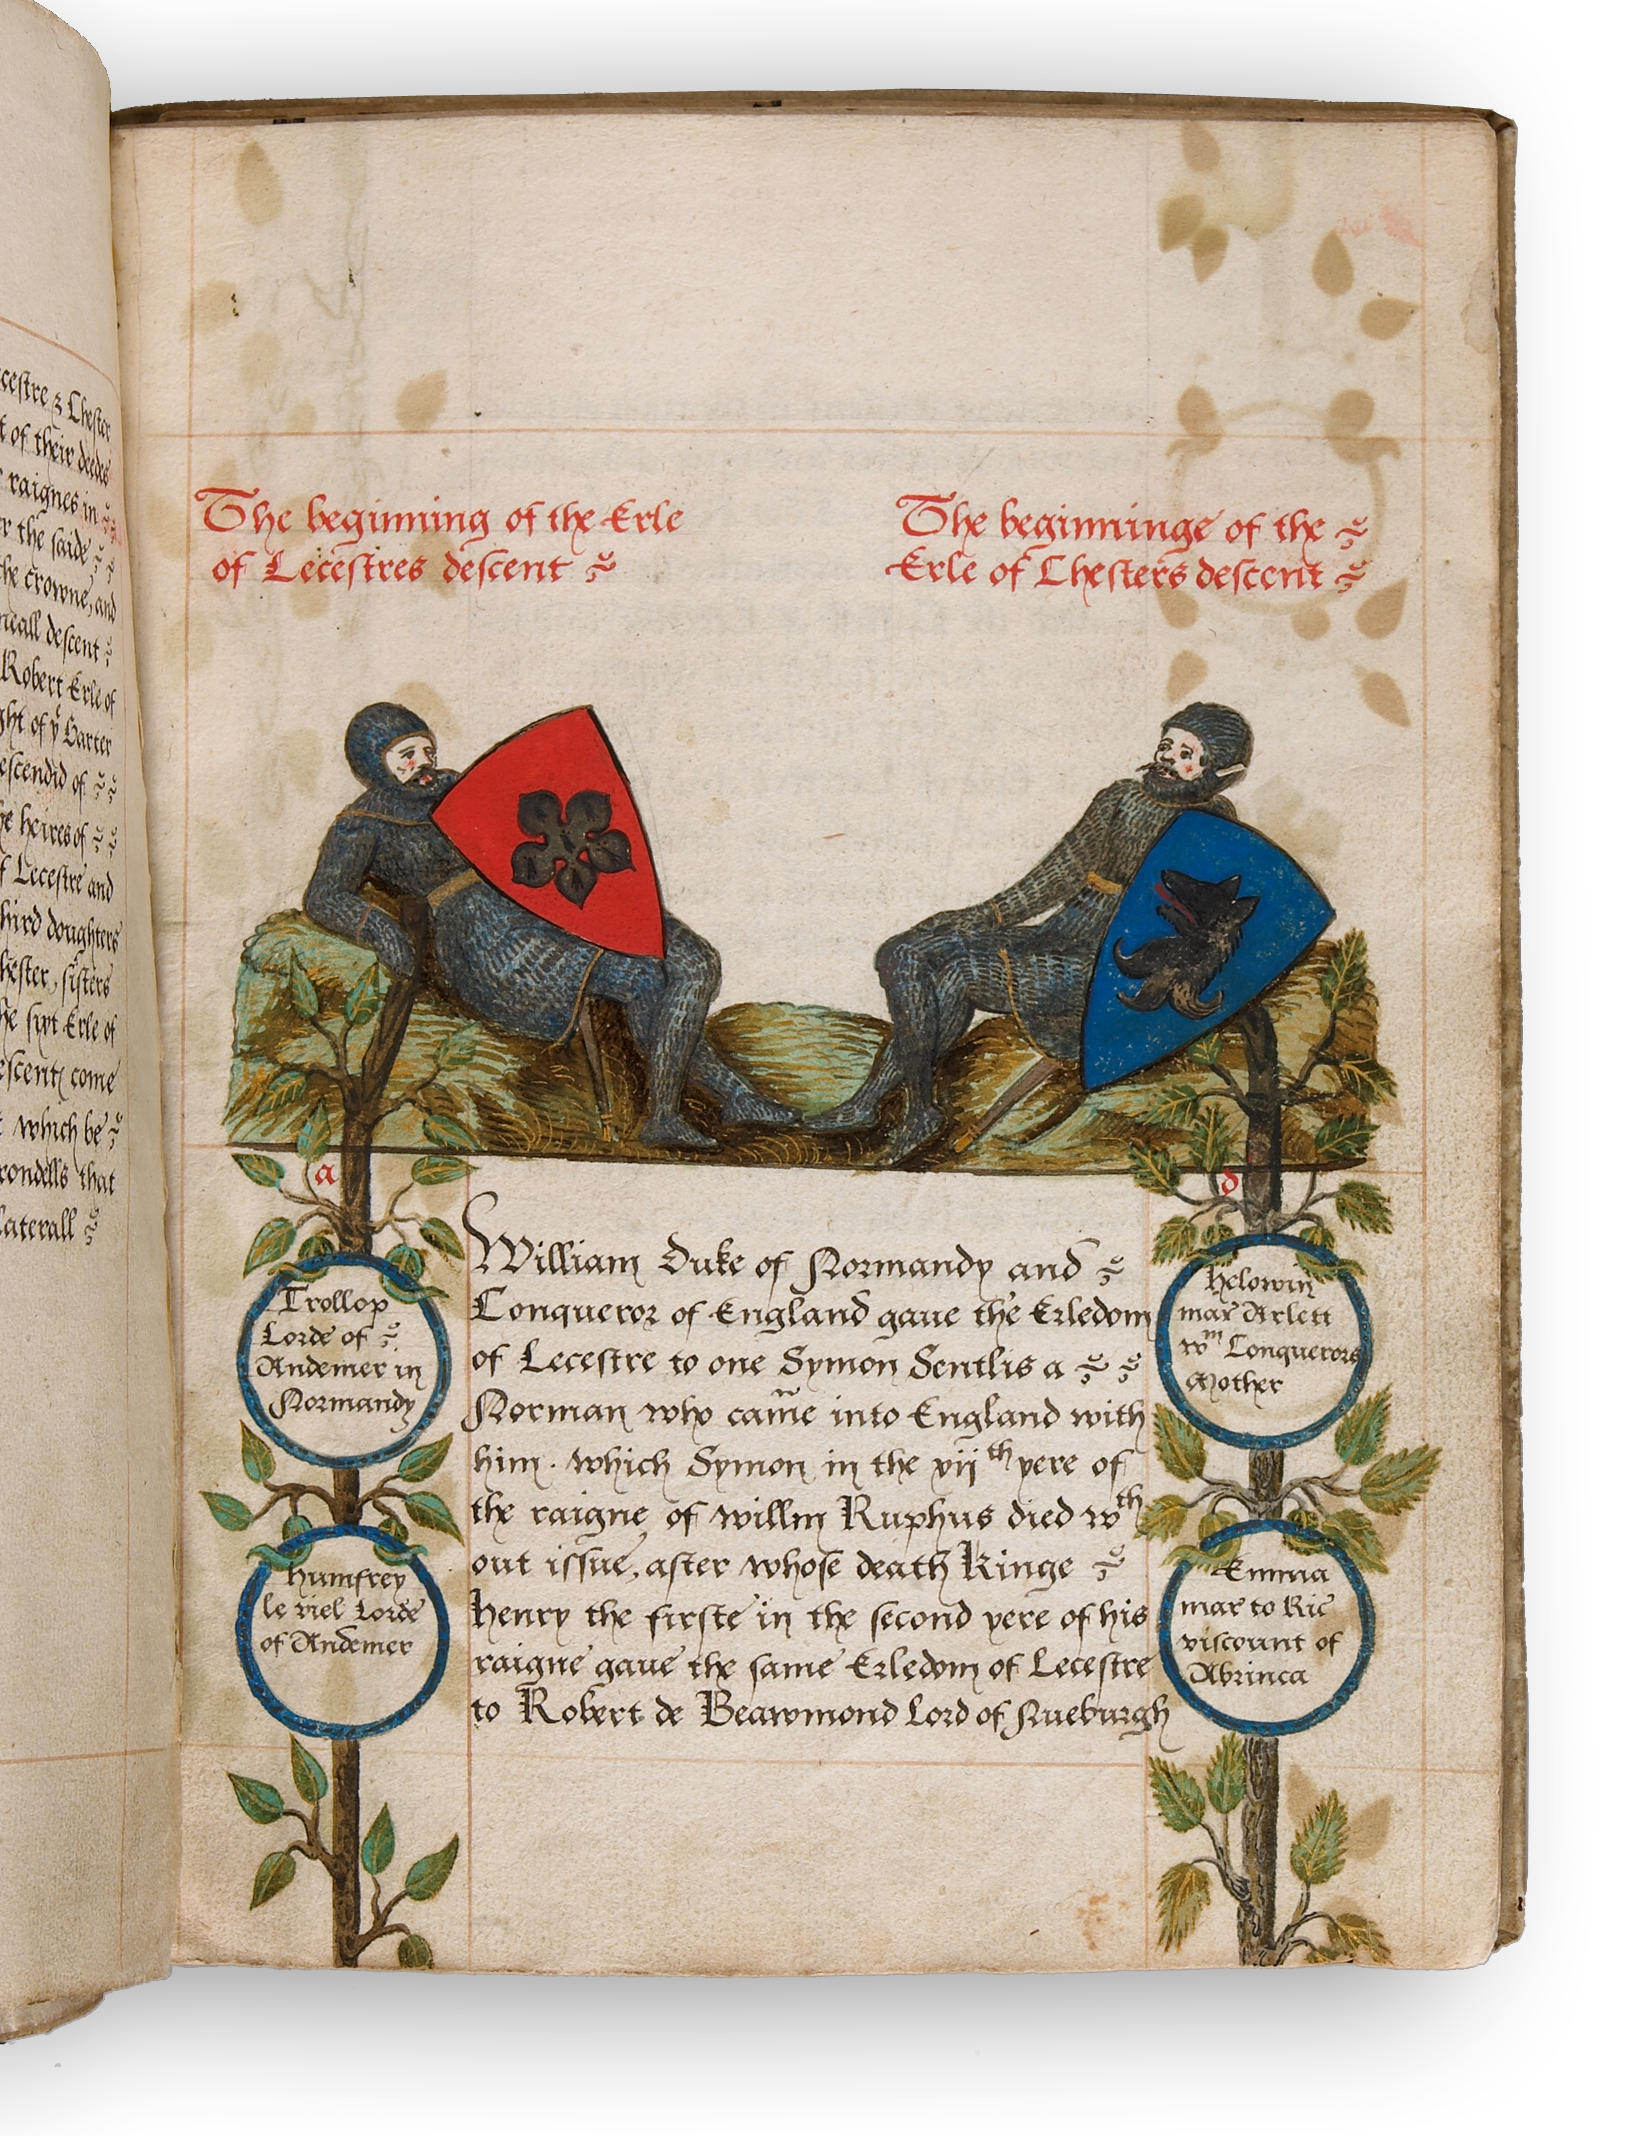 cestre & Chester
t of their deedes
raignes in
r the saide
he crowne, and
neall descent
Robert Erle of
ght of yᵉ Garter
escendid of
he heires of
f Lecestre and
hird doughters
hester, sisters
he syxt Erle of
escent come
t which be
rondells that
laterall
The beginning of the Erle
of Lecestres descent
The beginninge of the
Erle of Chesters descent
a
d
Trollop
Lorde of
Andemer in
Normandy
Humfrey
le viel Lorde
of Andemer
William Duke of Normandy and
Conqueror of England gaue the Erledom
of Lecestre to one Symon Sentlis a
Norman who came into England with
him. which Symon in the vijth yere of
the raigne of willm Ruphus died wth
out issue, after whose death Kinge
Henry the firste in the second yere of his
raigne gaue the same Erledom of Lecestre
to Robert de Beawmond Lord of Nueburgh
Helowin
mar Arlett
wm Conquerors
Mother
Emma
mar to Ric
viscount of
Abrinca